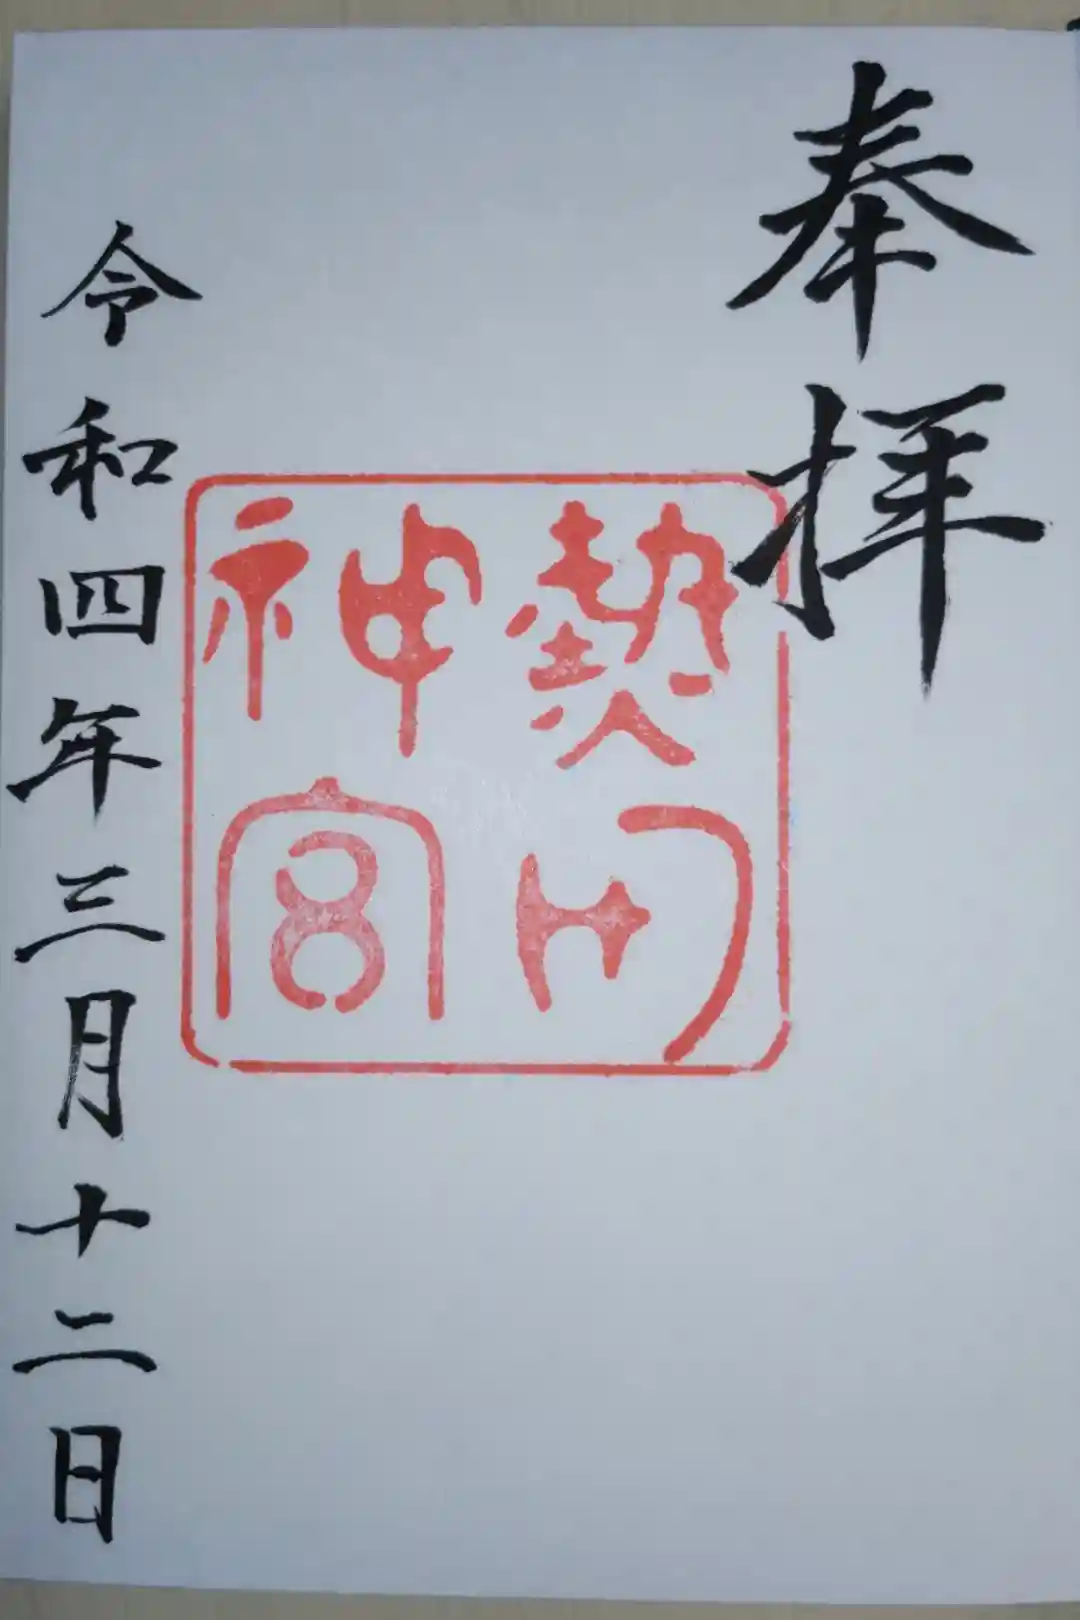 奉拝
熱田
神宮
令和四年三月十二日